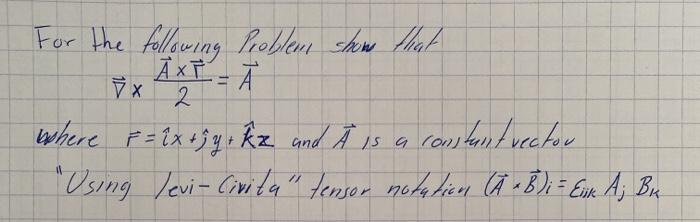 For the following Problem show that
∇⃗ × (A⃗ × r⃗)/2 = A⃗
where r⃗ = îx + ĵy + k̂z and A⃗ is a constant vector
"Using levi-Civita" tensor notation (A⃗ × B⃗)i = εijk Aj Bk